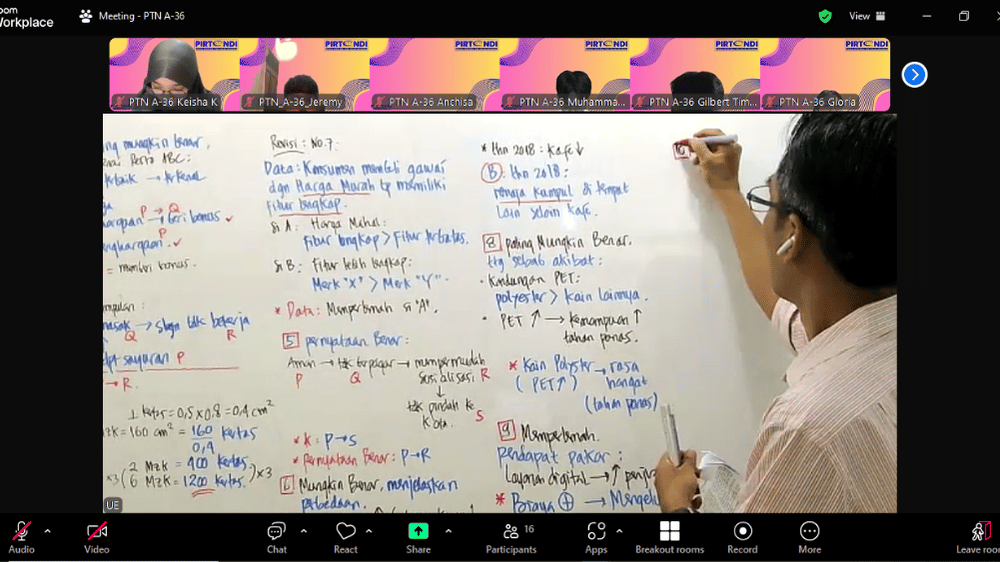 oom
Workplace
Meeting - PTN A-36
View
PIRTONDI
PIRTONDI
PIRTONDI
PIRTONDI
PIRTONDI
PIRTONDI
PTN A-36 Keisha K
PTN_A-36_Jeremy
PTN A-36 Anchisa
PTN A-36 Muhamma...
PTN A-36 Gilbert Tim...
PTN A-36_Gloria
ng mungkin benar.
ABC:
P → Q
beri bonus
P
= memberi bonus.
mpulan:
masak → bekerja
Q R
sayuran P
→ R.
1 kertas = 0,5 x 0,8 = 0,4 cm²
mzk = 160 cm² = 160 kertas
0,4
x3 ( 2 Mzk = 400 kertas. ) x3
6 Mzk = 1200 kertas.
Revisi: No.7:
Data: Konsumen membeli gawai
dgn Harga Murah tp memiliki
Fitur lengkap.
Si A: Harga Mahal:
Fitur lengkap > Fitur terbatas.
Si B: Fitur lebih lengkap:
Merk "X" > Merk "Y".
* Data: Memperlemah si "A".
5 pernyataan Benar:
Aman → tdk → mempermudah
P Q sosialisasi R
↓
tdk pindah ke
kota. S
* K: P → S
* pernyataan Benar: P → R
6 Mungkin Benar, menjelaskan
perbedaan.
* thn 2018: kafe ↓
B: thn 2018:
remaja kumpul di tempat
lain selain kafe.
8 paling Mungkin Benar.
ttg sebab akibat:
• Kandungan PET:
polyester > kain lainnya.
• PET ↑ → kemampuan ↑
tahan panas.
* Kain Polyster → rasa
(PET ↑) hangat
(tahan panas)
9 Memperlemah.
pendapat pakar:
Layanan digital → ↑
* Biaya ⊕ →
UE
Audio
Video
Chat
React
Share
16
Participants
Apps
Breakout rooms
Record
More
Leave roo